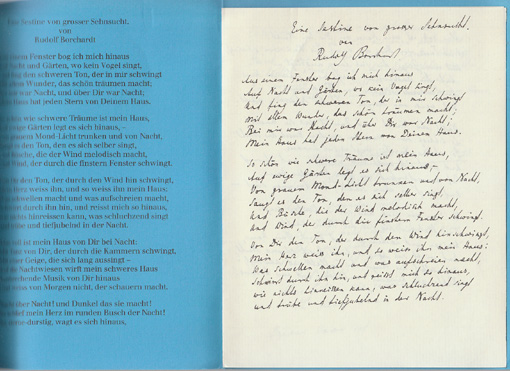 Eine Sestine von grosser Sehnsucht.
von
Rudolf Borchardt
einem Fenster bog ich mich hinaus
Nacht und Gärten, wo kein Vogel singt,
den schweren Ton, der in mir schwingt
dem Wunder, das schön träumen macht;
mir war Nacht, und über Dir war Nacht;
Haus hat jeden Stern von Deinem Haus.
schön wie schwere Träume ist mein Haus,
ewige Gärten legt es sich hinaus, –
grauem Mond-Licht trunken und von Nacht,
es den Ton, den es sich selber singt,
Büsche, die der Wind melodisch macht,
Wind, der durch die finstern Fenster schwingt.
den Ton, der durch den Wind hin schwingt,
Herz weiss ihn, und so weiss ihn mein Haus.
schwellen macht und was aufschreien macht,
durch ihn hin, und reisst mich so hinaus,
nichts hinreissen kann, was schluchzend singt
trübe und tiefjubelnd in der Nacht.
ist mein Haus von Dir bei Nacht:
von Dir, der durch die Kammern schwingt,
einer Geige, die sich lang aussingt –
die Nachtwiesen wirft mein schweres Haus
Musik von Dir hinaus
von Morgen nicht, der schauern macht.
über Nacht! und Dunkel das sie macht!
mein Herz im runden Busch der Nacht!
-dorstig, wagt es sich hinaus,
Eine Sestine von grosser Sehnsucht.
von
Rudolf Borchardt
Aus einem Fenster bog ich mich hinaus
Auf Nacht und Gärten, wo kein Vogel singt,
Und fing den schweren Ton, der in mir schwingt
Mit allem Wunder, das schön träumen macht;
Bei mir war Nacht, und über Dir war Nacht;
Mein Haus hat jeden Stern von Deinem Haus.
So schön wie schwere Träume ist mein Haus,
Auf ewige Gärten legt es sich hinaus, –
Von grauem Mond-Licht trunken und von Nacht,
Saugt es den Ton, den es sich selber singt,
Und Büsche, die der Wind melodisch macht,
Und Wind, der durch die finstern Fenster schwingt.
Von Dir den Ton, der durch den Wind hinschwingt,
Mein Herz weiss ihn, und so weiss ihn mein Haus:
Was schwellen macht und was aufschreien macht,
Schwingt durch ihn hin, und reisst mich so hinaus,
Wie nichts hinreissen kann, was schluchzend singt
Und trübe und tiefjubelnd in der Nacht.